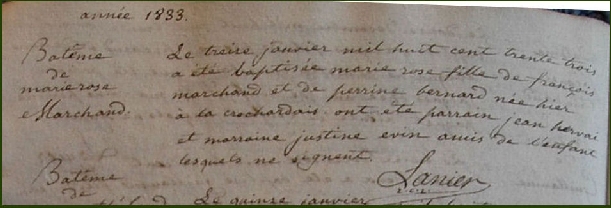 année 1833.
Batême
de
marie rose
Marchand.
Le treize janvier mil huit cent trente trois
a été baptisée marie rose fille de françois
marchand et de perrine bernard née hier
à la crochardais. ont été parrain jean hervai
et marraine justine evin amis de l'enfant
lesquels ne signent.
Lanier
Batême
de
Le quinze janvier